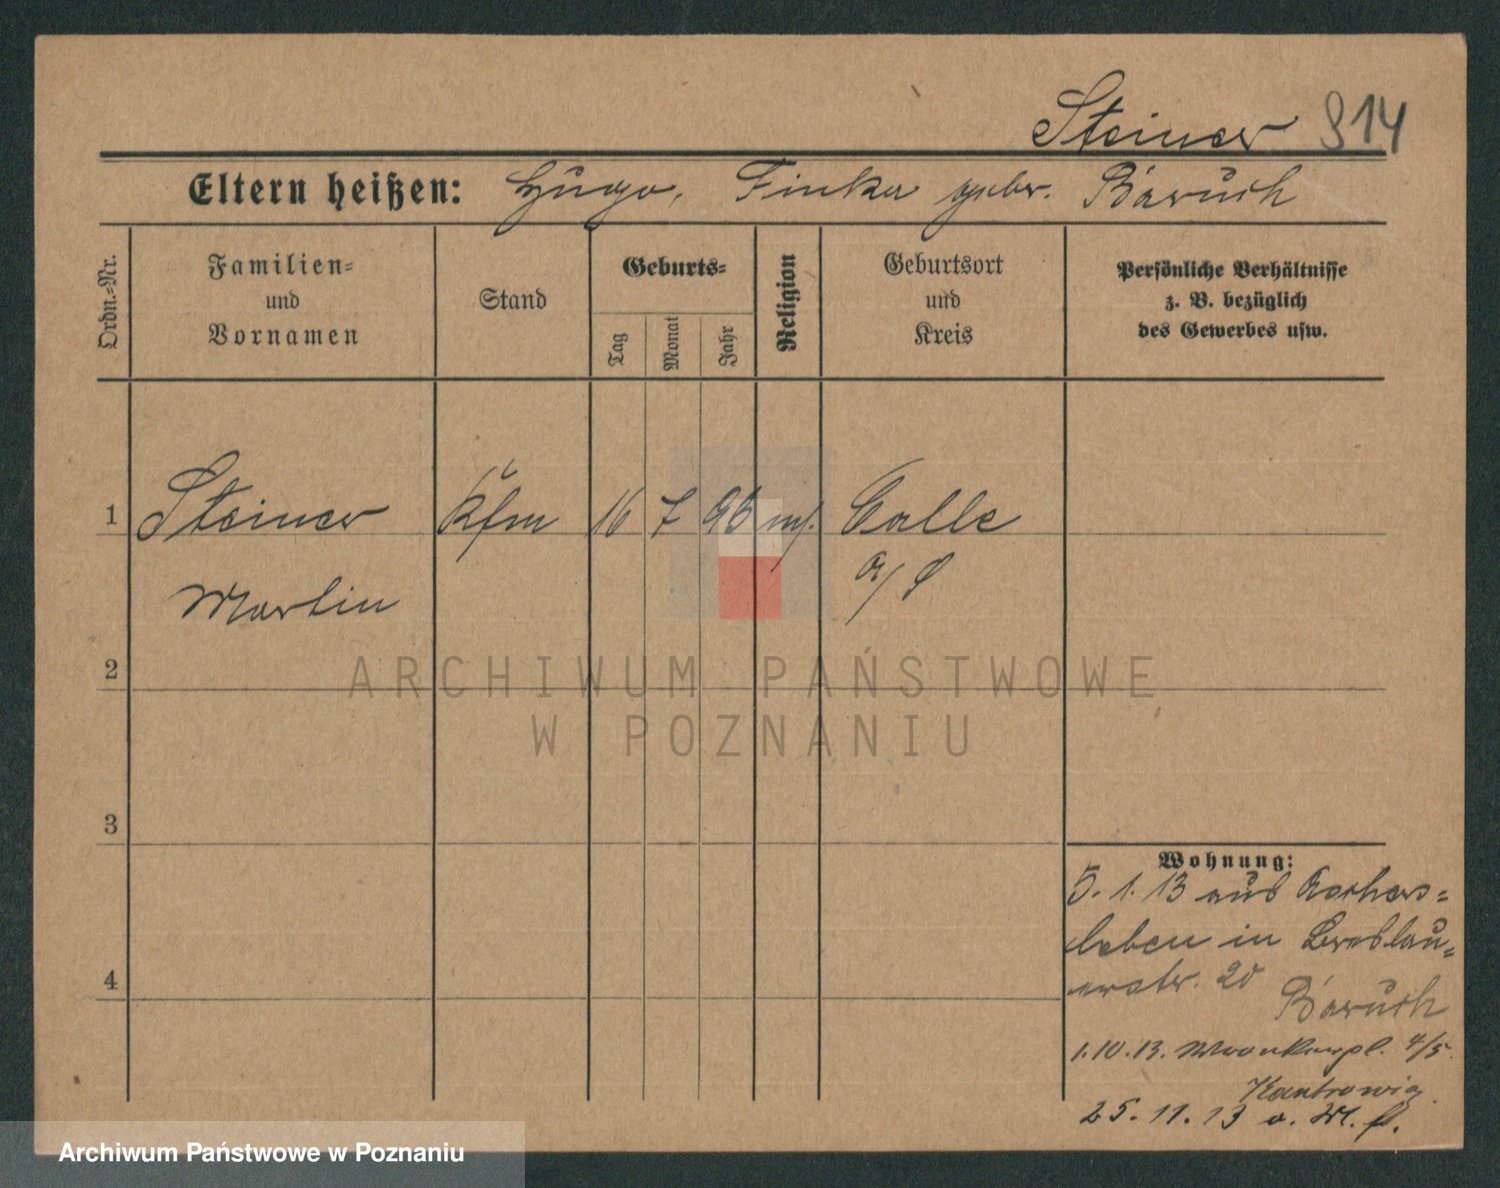 Steiner 914
Eltern heißen: Hugo, Finka gebr. Baruch
Ordn.-Nr.
Familien-
und
Vornamen
Stand
Geburts-
Tag
Monat
Jahr
Religion
Geburtsort
und
Kreis
Persönliche Verhältnisse
z. B. bezüglich
des Gewerbes usw.
1 Steiner Kfm 16 7 96 mos. Calbe
Martin a/S
2
3
4
Wohnung:
5. 1. 13 aus Aschers-
leben in Breslau-
erstr. 20
Baruch
1.10.13. Wronkerpl. 4/5
Kantrowig
25. 11. 13 a. M.
ARCHIWUM PAŃSTWOWE
W POZNANIU
Archiwum Państwowe w Poznaniu